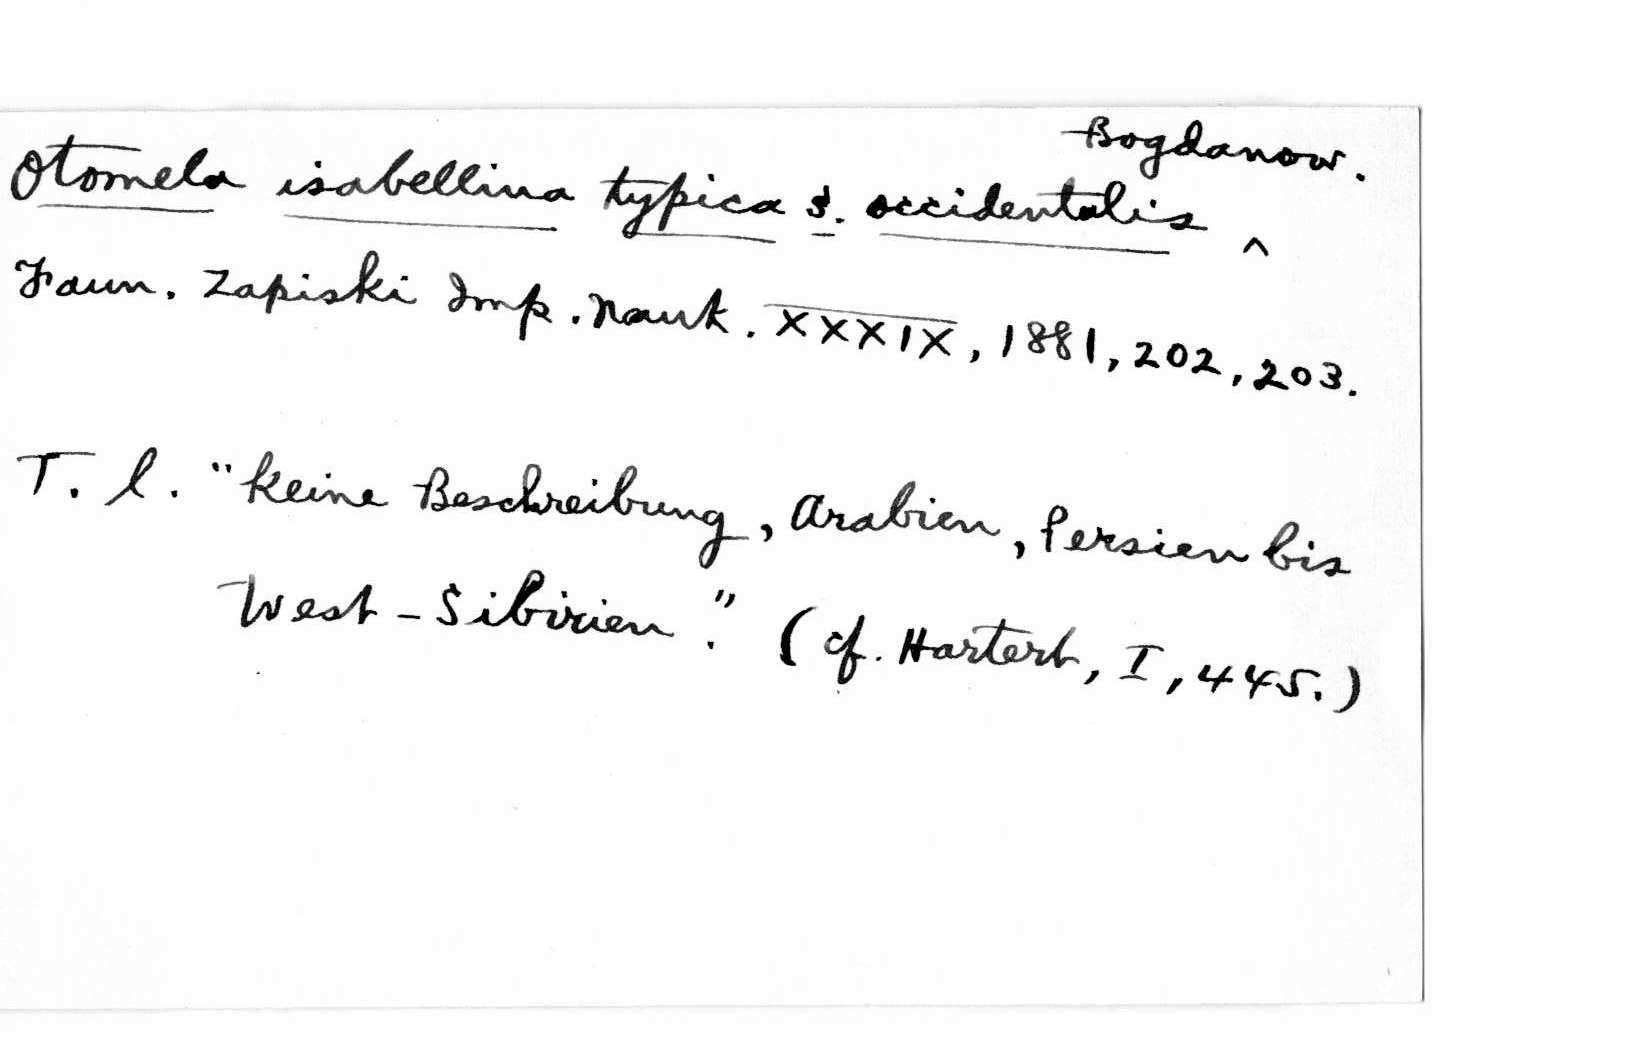 Otomela isabellina typica s. occidentalis ^ Bogdanow.
Faun. Zapiski Imp. Nauk. XXXIX, 1881, 202, 203.
T. l. "keine Beschreibung, Arabien, Persien bis
West-Sibirien." (cf. Hartert, I, 445.)